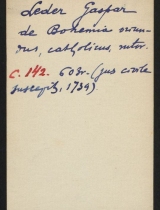 Leder Gaspar
de Bohemia oriun-
dus, catholicus, nutor.
C. 142. 60 dr. (jus civile
suscepit, 1739)